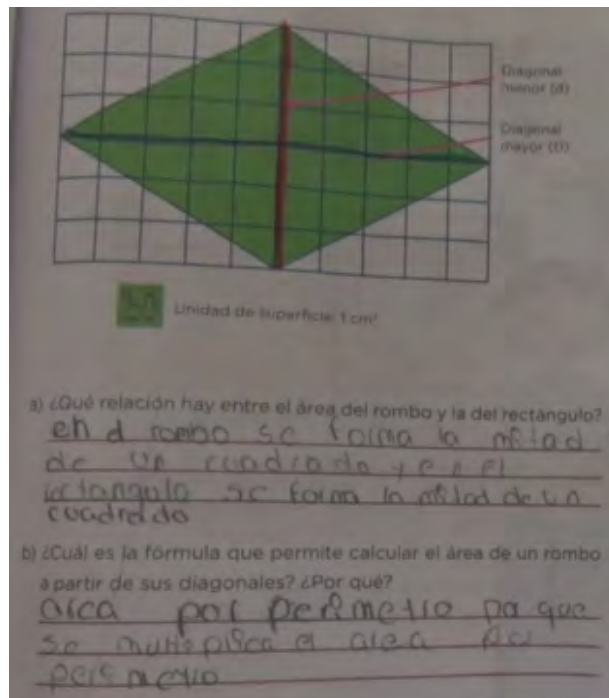 Diagonal
menor (d)
Diagonal
mayor (D)
Unidad de superficie: 1 cm²
a) ¿Qué relación hay entre el área del rombo y la del rectángulo?
en el rombo se forma la mitad
de un cuadrado y en el
rectangulo se forma la mitad de un
cuadrado
b) ¿Cuál es la fórmula que permite calcular el área de un rombo
a partir de sus diagonales? ¿Por qué?
area por perimetro pa que
se multiplica el area por
perimetro